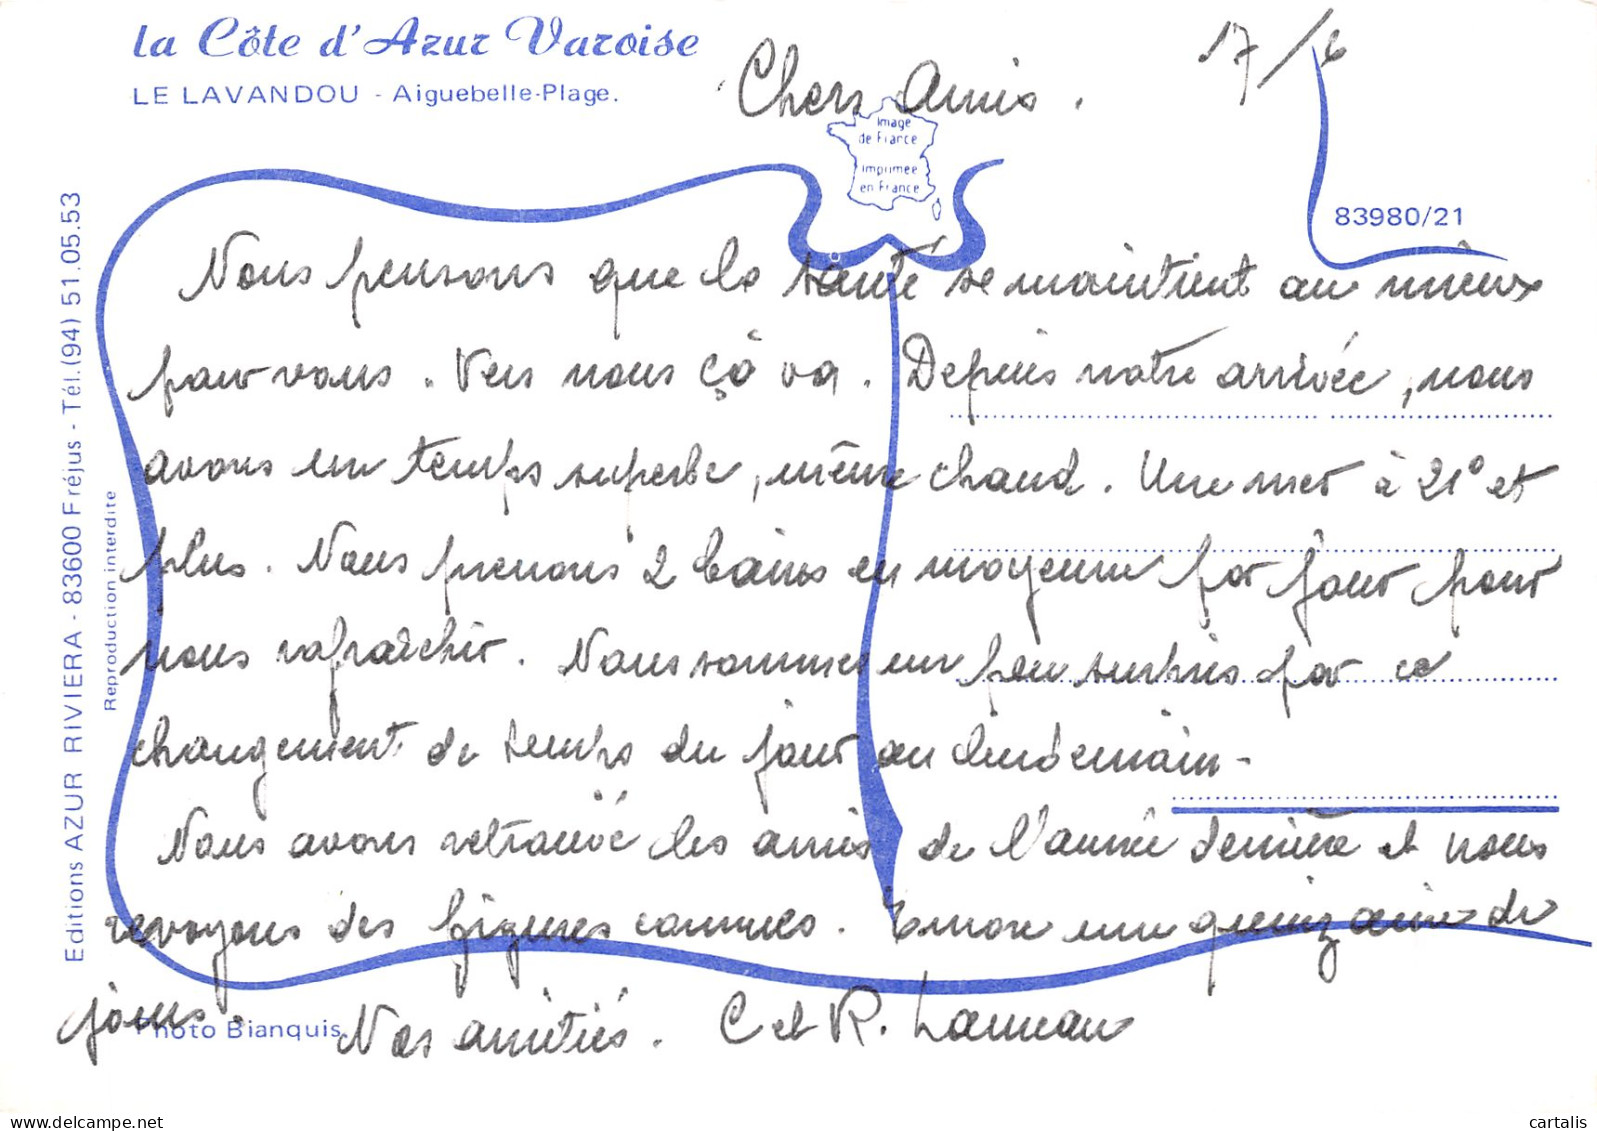 la Côte d'Azur Varoise
LE LAVANDOU - Aiguebelle-Plage.
17/6
Chers Amis.
Image
de France
imprimée
en France
83980/21
Nous pensons que la santé se maintient au mieux
pour vous. Vers nous çà va. Depuis notre arrivée, nous
avons un temps superbe, même chaud. Une mer à 21° et
plus. Nous prenons 2 bains en moyenne par jour pour
nous rafraîchir. Nous sommes un peu surpris par ce
changement de temps du jour au lendemain.
Nous avons retrouvé les amis de l'année dernière et nous
revoyons des figures connues. Encore une quinzaine de
jours.
Nos amitiés. C et R.
Photo Bianquis
Editions AZUR RIVIERA - 83600 Fréjus - Tél. (94) 51.05.53
Reproduction interdite
cartalis